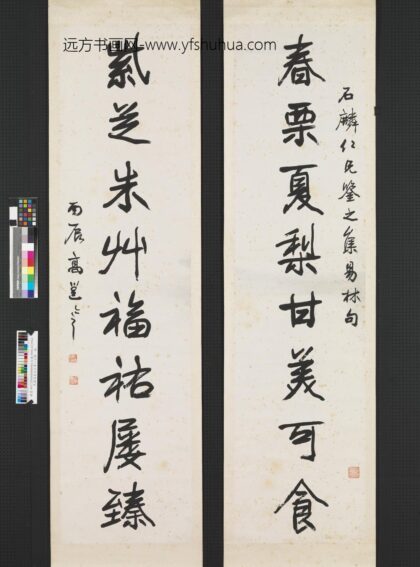 远方书画网-www.yfshuhua.com
石麟仁兄鑒之集易林句
春栗夏梨甘美可食
紫芝朱艸福祐屢臻
丙辰高邕